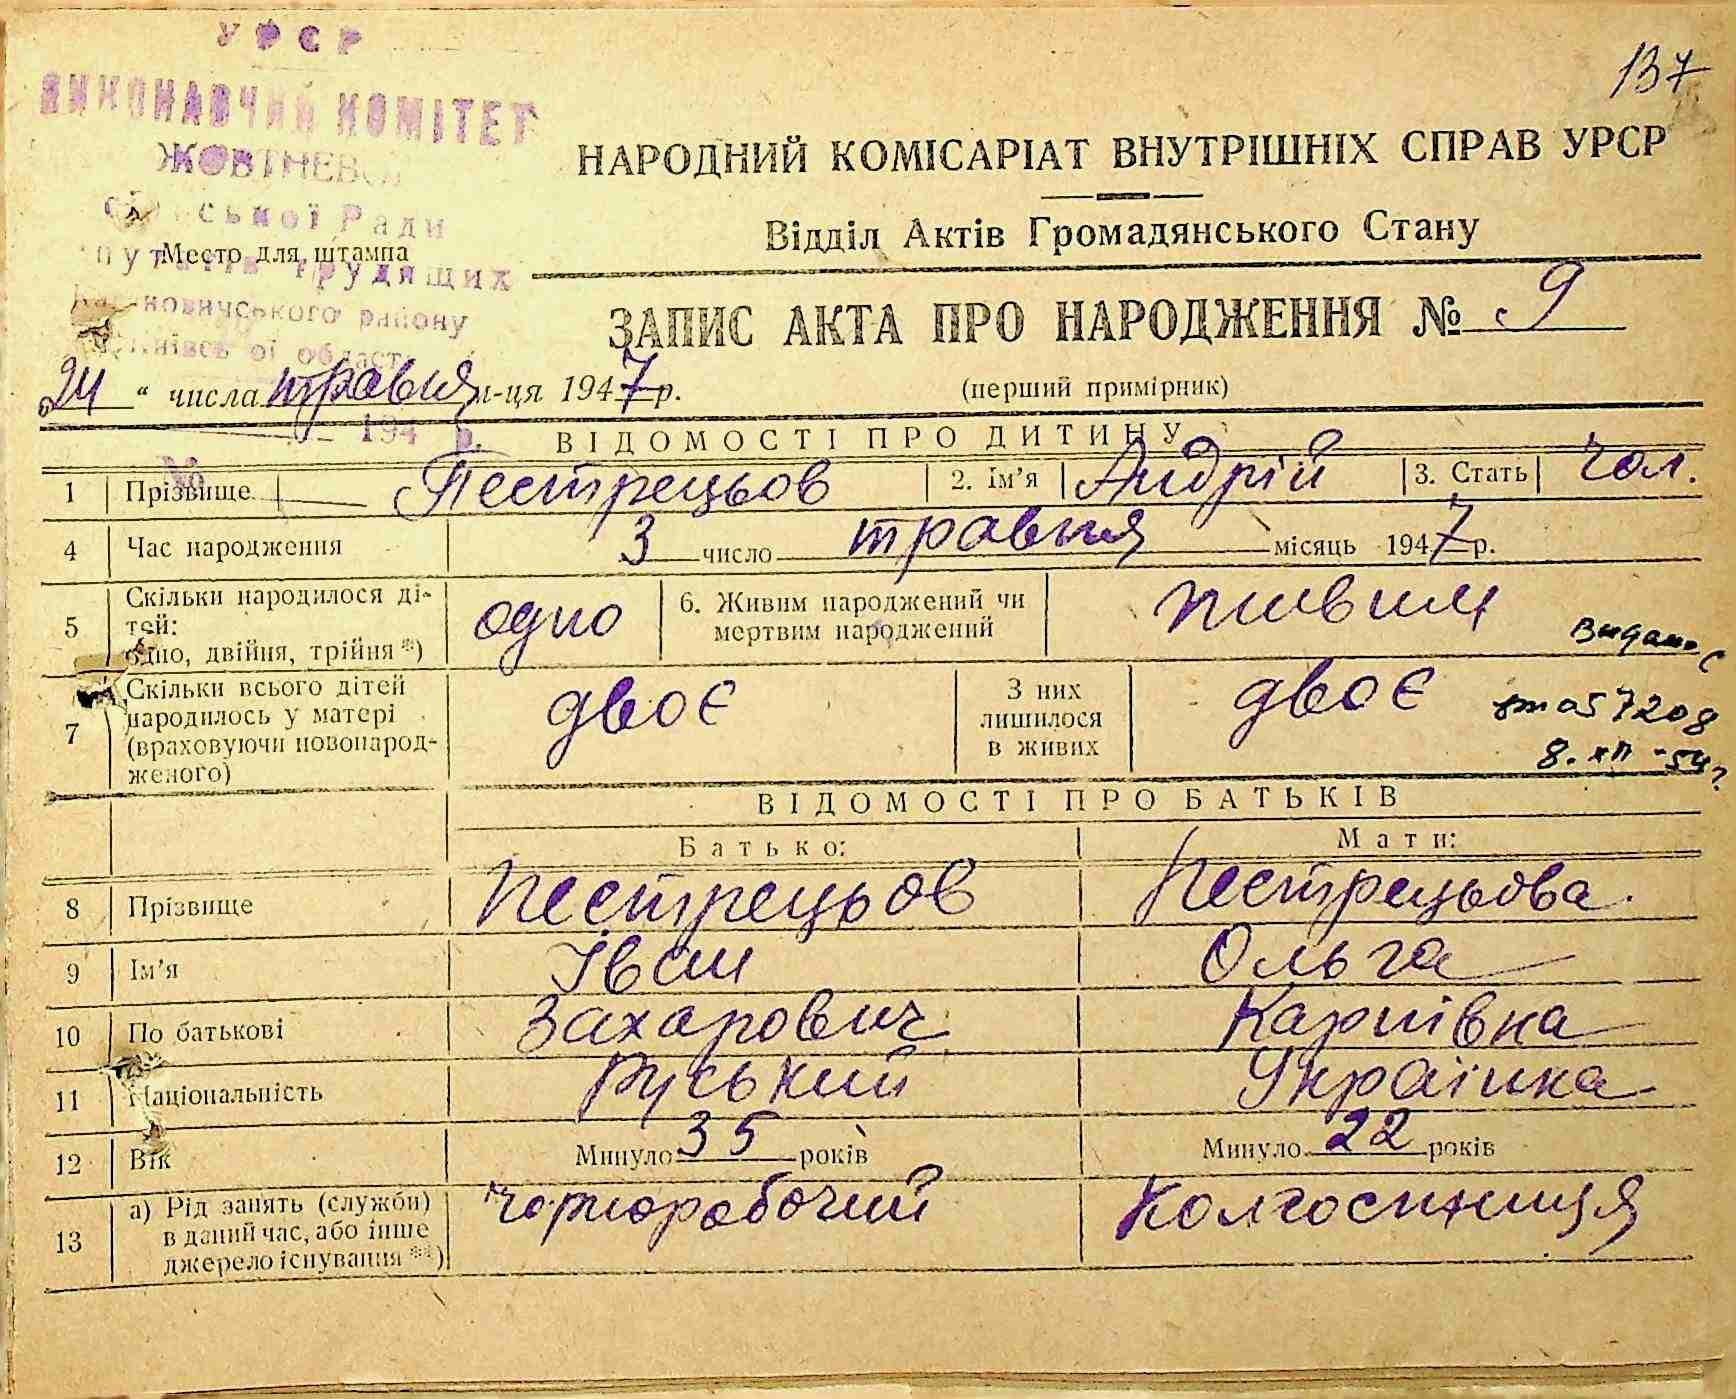 УРСР
137
ВИКОНАВЧИЙ КОМІТЕТ
ЖОВТНЕВО
НАРОДНИЙ КОМІСАРІАТ ВНУТРІШНІХ СПРАВ УРСР
сільської Ради
Відділ Актів Громадянського Стану
Место для штампа
трудящих
району
ЗАПИС АКТА ПРО НАРОДЖЕННЯ № 9
„24“ числа травня м-ця 1947 р.
(перший примірник)
194 р.
№
ВІДОМОСТІ ПРО ДИТИНУ
1 Прізвище Пестрецьов 2. Ім’я Андрій 3. Стать чол.
4 Час народження 3 число травня місяць 1947 р.
5 Скільки народилося ді-
тей:
одно, двійня, трійня *)
одно
6. Живим народжений чи
мертвим народжений
живим
7 Скільки всього дітей
народилось у матері
(враховуючи новонарод-
женого)
двоє
З них
лишилося
в живих
двоє
057208
8. XII - 54 г.
ВІДОМОСТІ ПРО БАТЬКІВ
Батько: Мати:
8 Прізвище Пестрецьов Пестрецьова
9 Ім’я Іван Ольга
10 По батькові Захарович Карпівна
11 Національність Руський Українка
12 Вік Минуло 35 років Минуло 22 років
13 а) Рід занять (служби)
в даний час, або інше
джерело існування **)
чорноробочий Колгоспниця